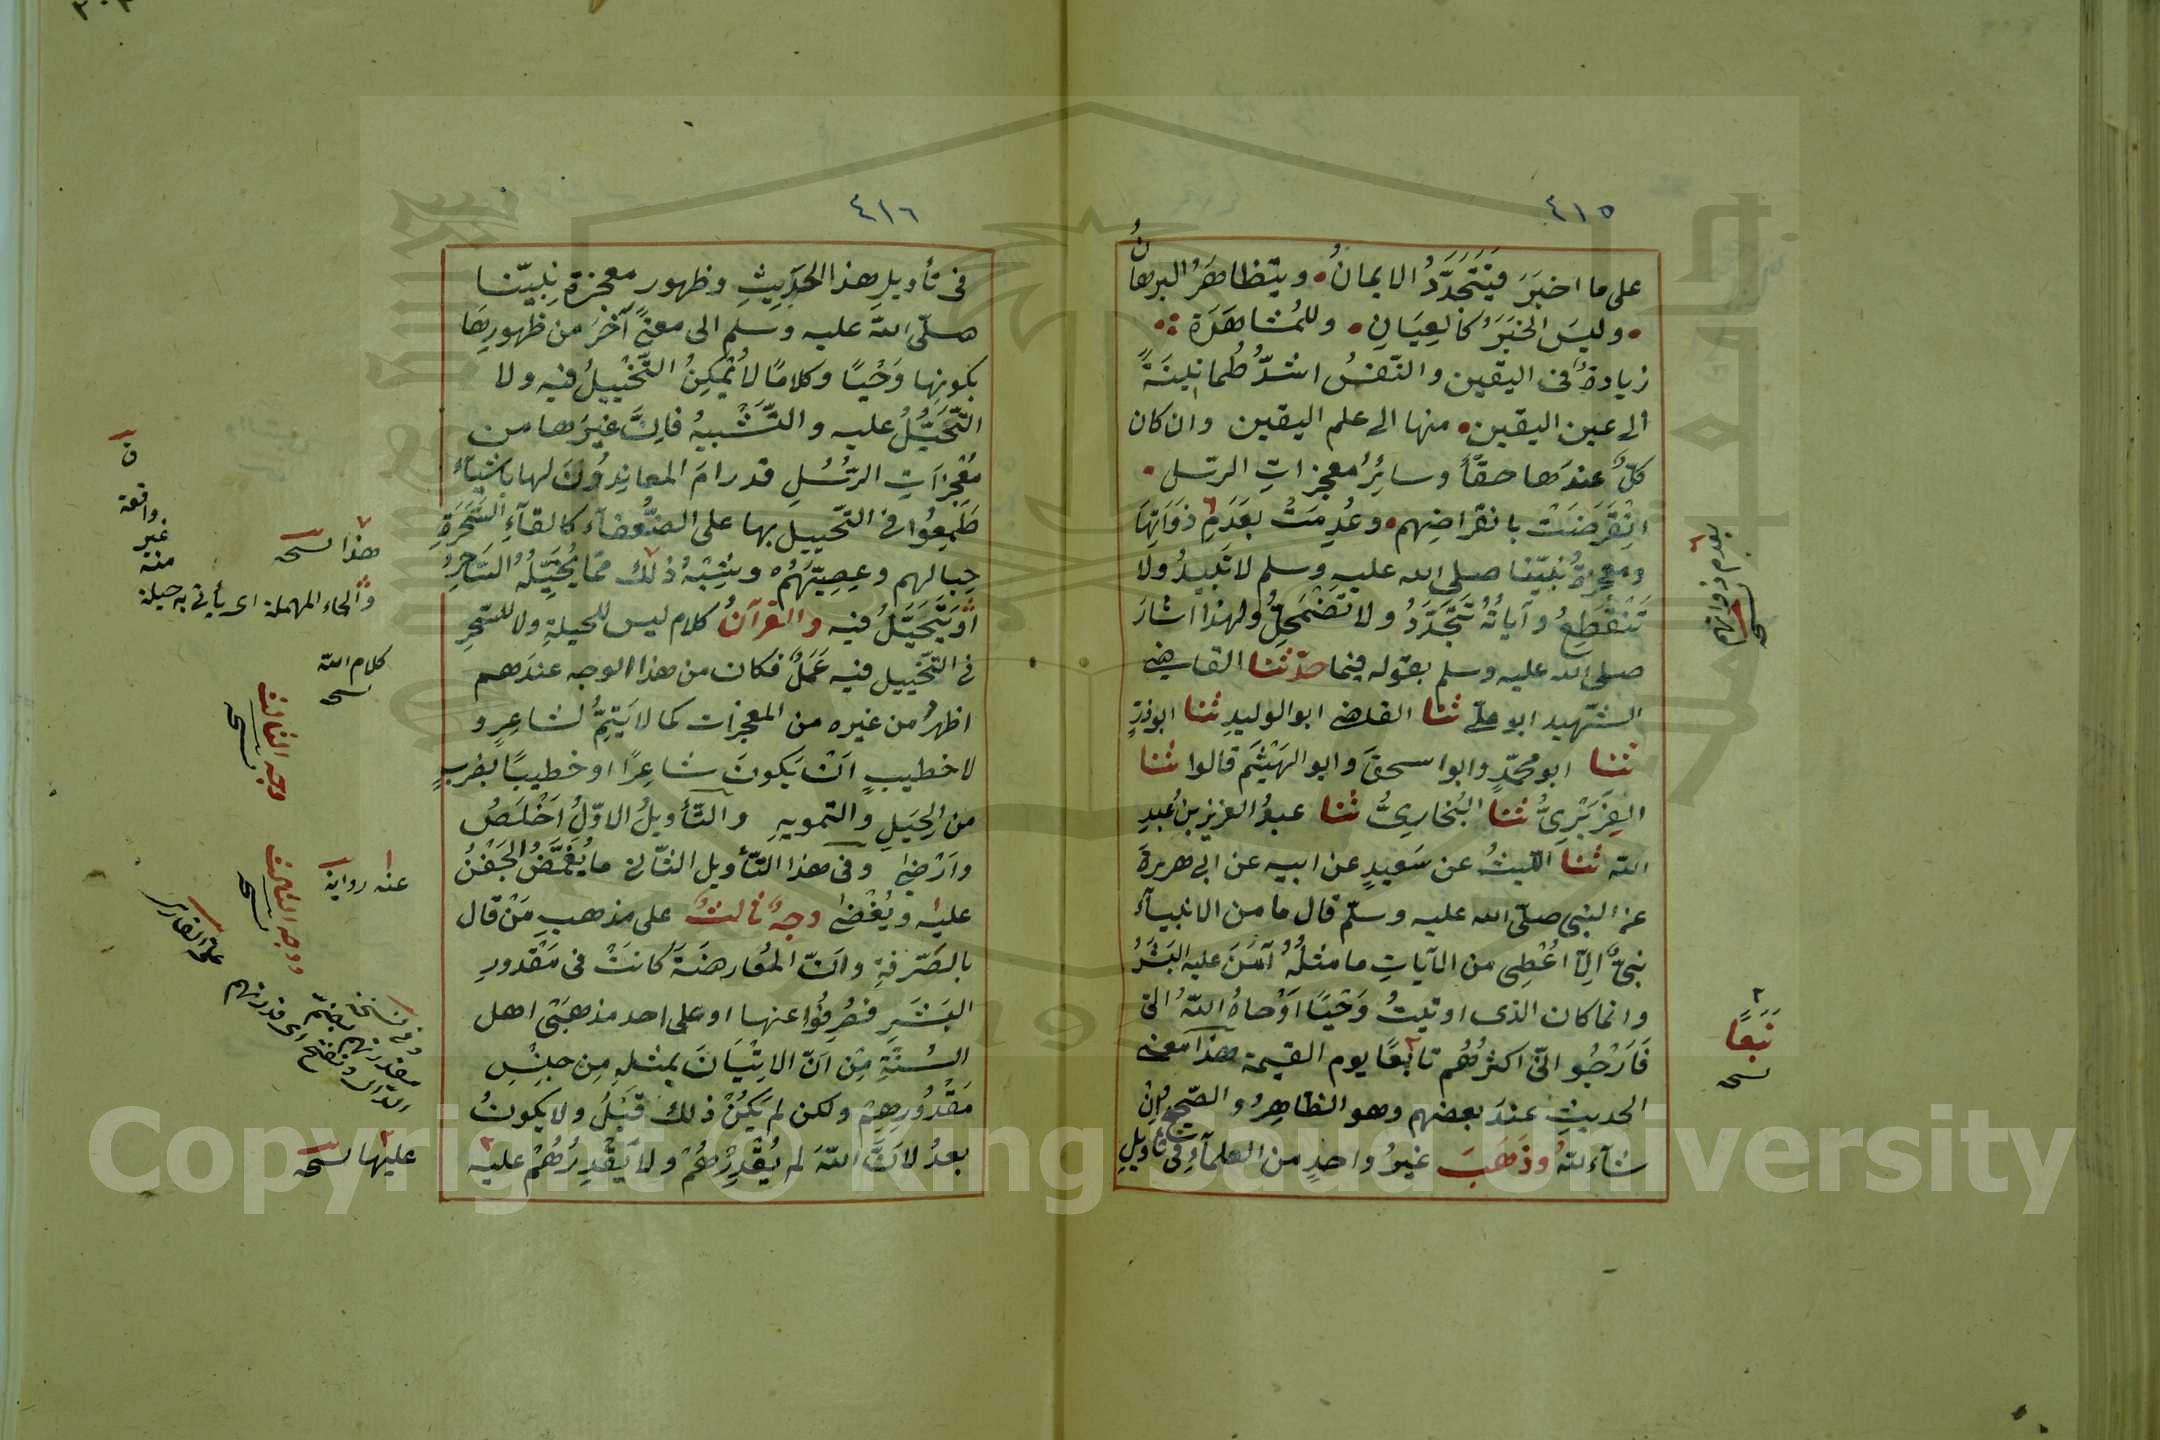 ٤١٥
على ما اخبَرَ فَيَتَجَدَّدُ الايمانُ • ويتظاهَرُ البرهانُ
• وليسَ الخبَرُ كالعِيَانِ • وللمُشاهَدَةِ
زيادةٌ فى اليقين والنّفسُ اشدُّ طُمانينَةً
الى عين اليقين • منها الى علم اليقين وان كان
كلٌّ عندها حقًّا وسائِرُ معجزاتِ الرسل •
انْقَرَضَتْ بانقراضِهم • وعُدِمَتْ بعَدَمِ ذوَاتِهَا
ومعجزةُ نبيّنا صلى الله عليه وسلم لا تَبيدُ ولا
تَنْقَطِعُ وآياتُهُ تتَجَدَّدُ ولا تَضْمَحِلُّ ولهذا اشارَ
صلى الله عليه وسلم بقوله فيما حدّثنا القاضى
الشّهيد ابو علىّ ثنا القاضى ابو الوليدِ ثنا ابوذرٍّ
ثنا ابو محمّدٍ وابو اسحقَ وابو الهَيْثَم قالوا ثنا
الفِرَبْرِىُّ ثنا البُخارِىُّ ثنا عبدُ العزيز بن عُبدِ
الله ثنا الليثُ عن سَعيدٍ عن ابيه عن ابى هريرةَ
عن النبى صلّى الله عليه وسلّم قال ما من الانبيآءِ
نبىٌّ اِلّا اُعْطِى من الآياتِ ما مثلُهُ آمَنَ عليه البَشَرُ
وانما كان الذى اوتيتُ وَحْيًا اَوْحاهُ اللهُ الىّ
فَاَرْجُو انّى اكثرُهُم تابعًا يوم القيمة هذا معنى
الحديثِ عندَ بعضهم وهو الظاهِرُ والصّحيحُ اِنْ
شآء اللهُ وذَهَبَ غيرُ واحدٍ من العلمآءِ فى تأويلِ
بعدم ذواتها
نسخه
تَبَعًا
نسخه
٤١٦
فى تأويلِ هذا الحَدِيثِ وظهور معجزة نبيّنا
صلّى الله عليه وسلم الى معنًى آخَرَ من ظهورِهَا
بكونِها وَحْيًا وكلامًا لا يُمْكِنُ التّخْييلُ فيه ولا
التّحَيُّلُ عليه والتَّشْبيهُ فاِنَّ غيرَها من
مُعْجِزاتِ الرّسُلِ قد رامَ المعانِدُونَ لها باشيآءَ
طَمِعُوا فى التّخييل بها على الضُّعفآء كالقآءِ السَّحَرَةِ
حِبالهم وعِصِيَّهُمْ وشِبْهُ ذلك ممّا يُخَيِّلُهُ السّاحِرُ
اَوْ يَتَحَيَّلُ فيه والقرآنُ كلام ليس للحيلةِ ولا للسِّحْرِ
فى التّخييل فيه عَمَلٌ فكان من هذا الوجه عندَهم
اظهرَ من غيره من المعجزات كما لا يَتِمُّ لشاعِرٍ و
لا خطيبٍ اَنْ يَكونَ شاعِرًا او خطيبًا بضربٍ
من الحِيَلِ والتمويهِ والتّأويلُ الاوّلُ اَخْلَصُ
واَرْضى وفى هذا التّأويل الثّانى ما يُغَمَّضُ الجَفْنُ
عليه ويُغْضى وجهٌ ثالثٌ على مذهب مَنْ قال
بالصَّرْفةِ وانّ المُعَارضَةَ كانَتْ فى مَقْدورِ
البَشَرِ فصُرِفُوا عنها او على احد مذهبَىْ اهل
السُّنَّةِ مِنْ اَنّ الاِتْيَانَ بمثله مِن جِنْسِ
مَقْدُورِهِمْ ولكن لم يَكُنْ ذلك قَبْلُ ولا يكونُ
بعدُ لانَّ اللهَ لم يُقْدِرْهُمْ ولا يُقْدِرُهُمْ عليه
غير واقعة
منه
هذا نسخه
والحاء المهملة اى يأتى به حيلة
كلام الله
نسخه
وجه الثالث
نسخه
عنه رواية
ووجه الثالث
نسخه
على القارى
عليها نسخه
Copyright © King Saud University